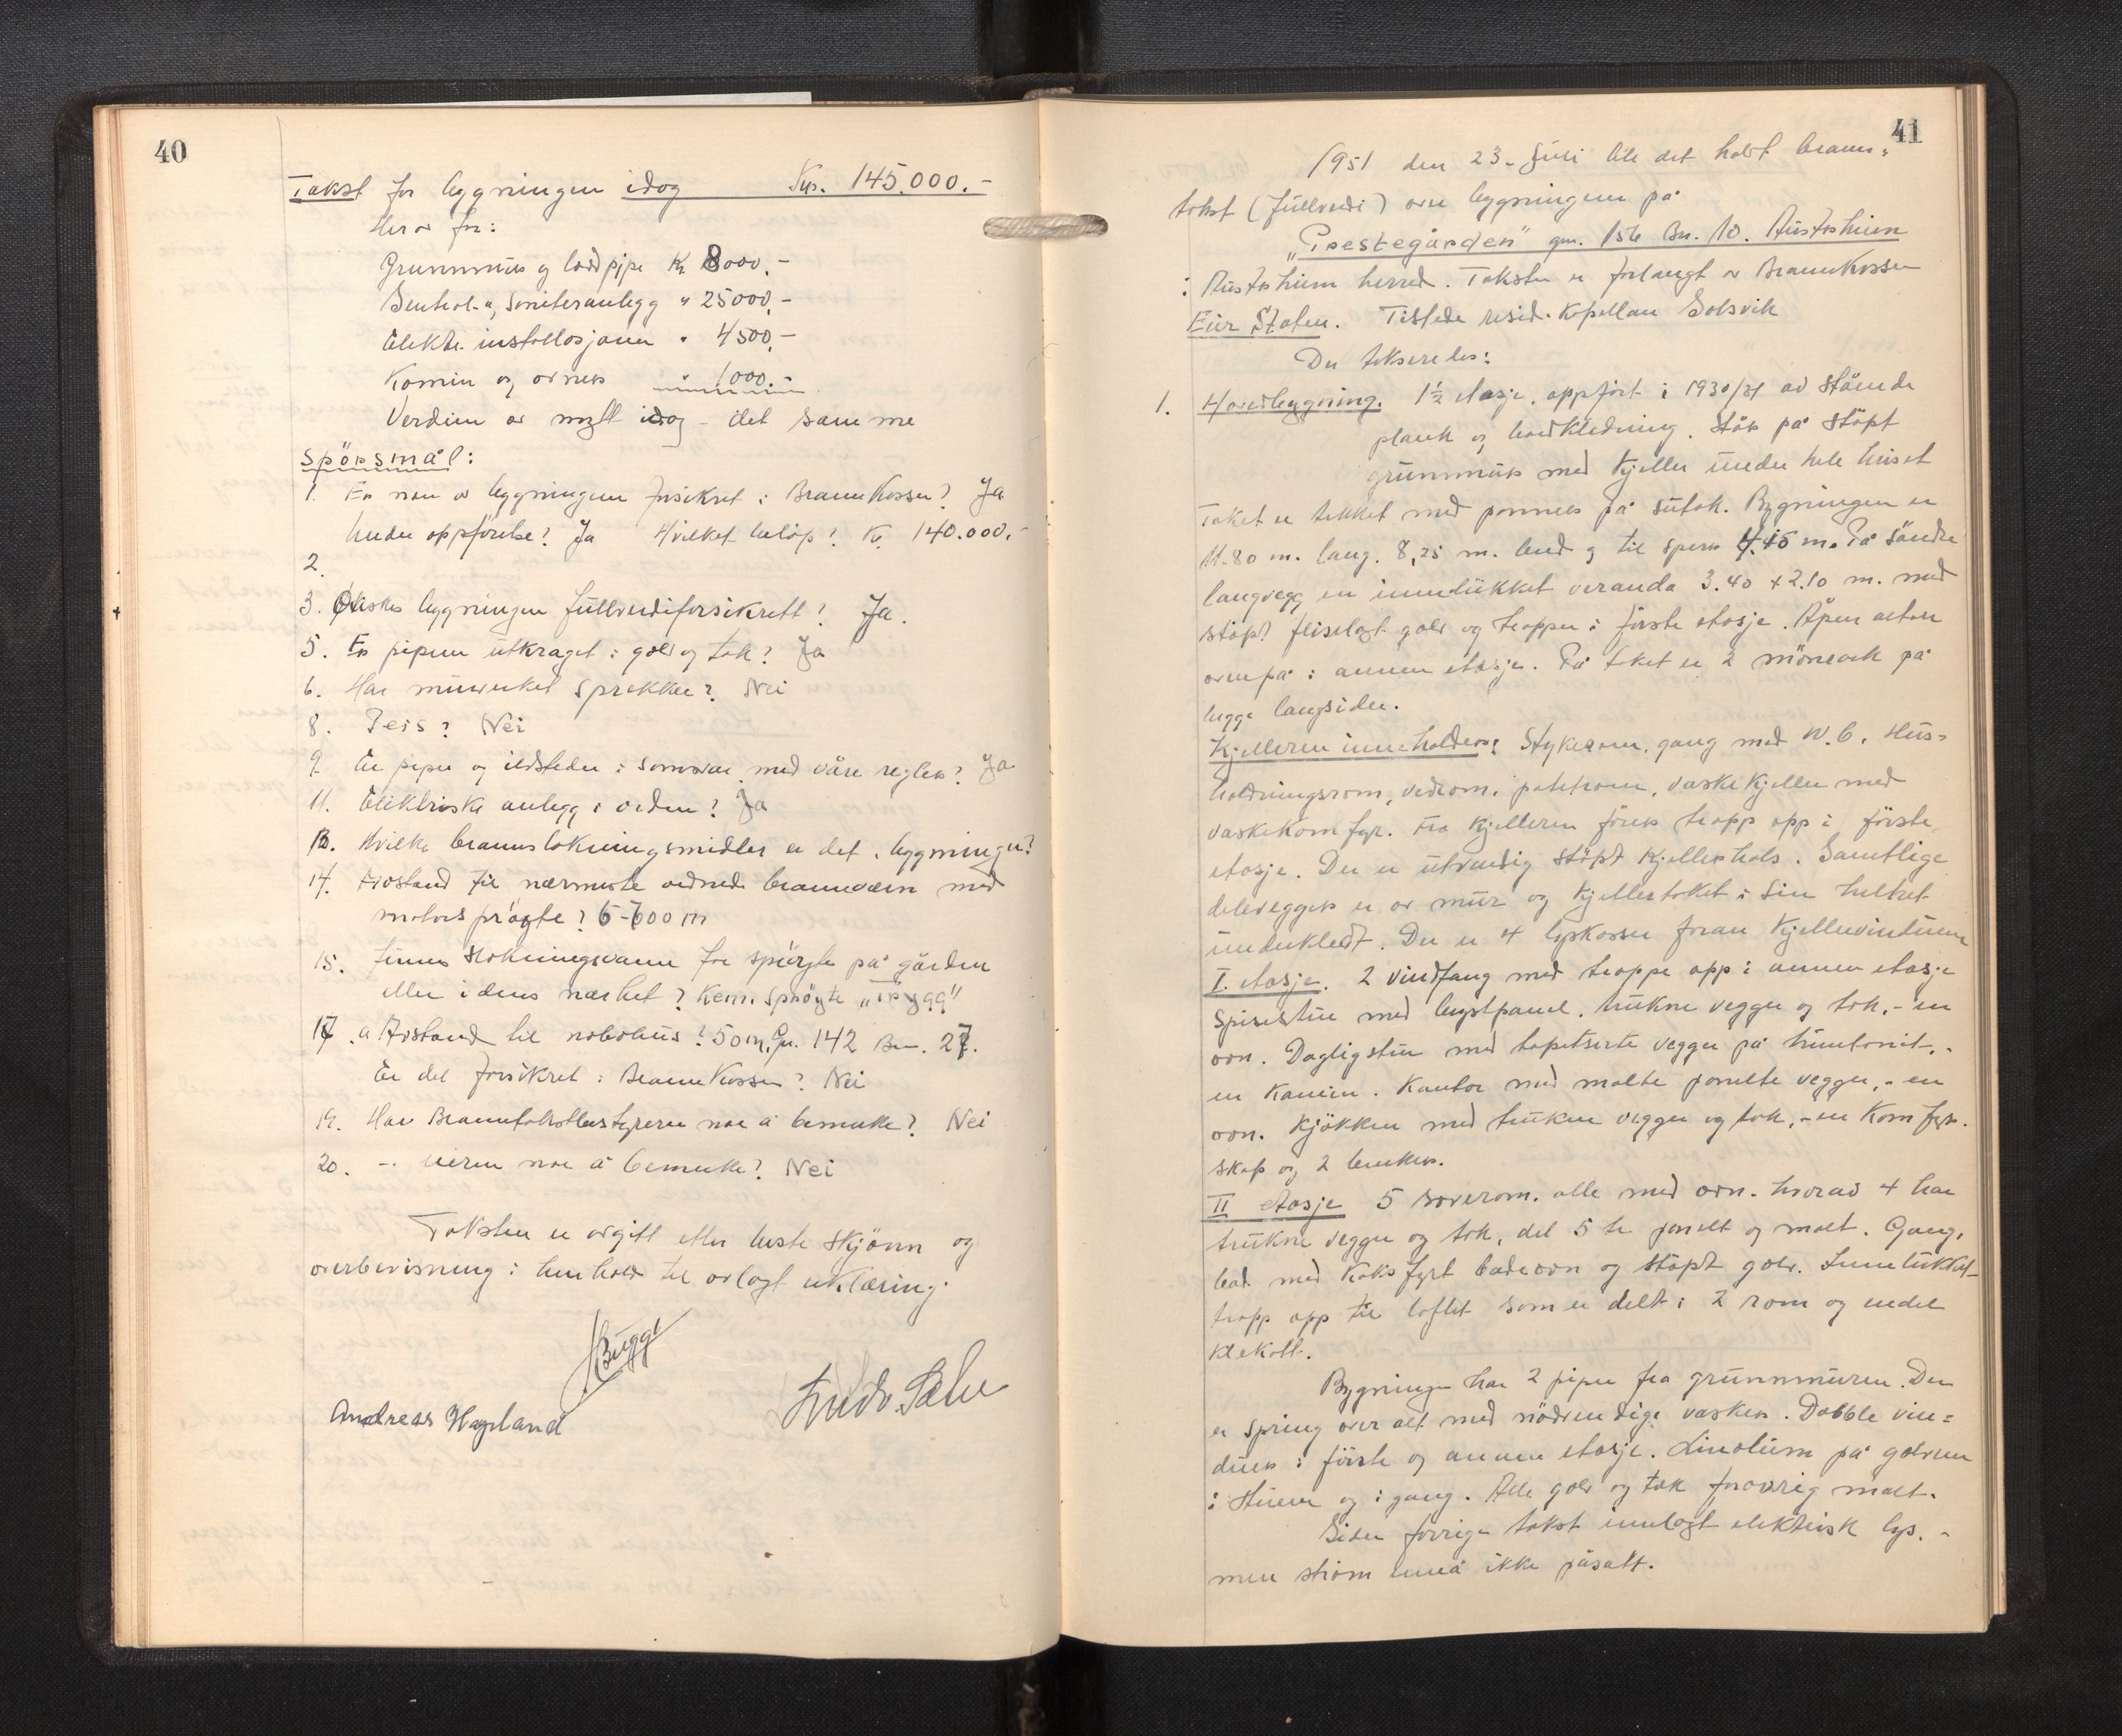 40
Takst for bygningen idag Kr. 145.000.-
Herav for:
Grunnmur og loddpipe Kr 8000.-
Sentral- o, Saniteranlegg " 25000.-
Elektr. installasjoner " 4500.-
Komin og ovner " 1000.-
Verdien av nytt idag - det samme
Spörsmål:
1. Er noen av bygningene forsikret i Brannkassen? Ja
Under oppförelse? Ja Hvilket belöp? Kr. 140.000.-
2.
3. Ønskes bygningen fullverdiforsikrett? Ja.
5. Er pipene utkraget i golv og tak? Ja
6. Har murverket sprekker? Nei
8. Peis? Nei
9. Er piper og ildsteder i samsvar med våre regler? Ja
11. Elektriske anlegg i orden? Ja
13. Hvilke brannslokningsmidler er det i bygningen?
14. Avstand til nærmeste ordnede brannvern med
motorspröyte? 6-700 m
15. Finnes slokningsvann for spröyte på gården
eller i dens nærhet? Kem. Spröyte „Trygg"
17. a Avstand til nabohus? 50 m. Gn. 142 Bn. 27.
Er det forsikret i Brannkassen? Nei
19. Har Branntakstbestyreren noe å bemerke? Nei
20. -- eieren noe å bemerke? Nei
Taksten er avgitt etter beste skjönn og
overbevisning i henhold til avlagt erklæring.
Bugge
Andreas Hopland
41
1951 den 23. Juli ble det holdt brann=
takst (fullverdi) over bygningene på
„Prestegården" gn. 156 Bn. 10. Austrheim
i Austrheim herred. Taksten er forlangt av Brannkassen
Eier Staten. Tilstede resid. Kapellan Solsvik
Der takseres:
1. Hovedbygning. 1½ etasje, oppfört i 1930/31 av stående
plank og bordkledning. Står på stöpt
grunnmur med kjeller under hele huset
Taket er tekket med panner på sutak. Bygningen er
11.80 m. lang. 8,25 m. bred og til sperr 4.45 m. På söndre
langvegg en innelukket veranda 3.40 x 2.10 m. med
stöpt fliselagt golv og trapper i förste etasje. Åpen altan
ovenpå i annen etasje. På taket er 2 möneark på
begge langsider.
Kjelleren inneholder: Stykerom, gang med W.C. Hus=
holdningsrom, vedrom, potetrom, vaskekjeller med
vaskekomfyr. Fra kjelleren förer trapp opp i förste
etasje. Der er utvendig stöpt kjellerhals. Samtlige
delevegger er av mur og kjellertaket i sin helhet
underkledt. Der er 4 lyskasser foran kjellervinduene
I. etasje. 2 vindfang med trappe opp i annen etasje
Spisestue med brystpanel, trukne vegger og tak, - en
ovn. Dagligstue med tapetserte vegger på huntonit, -
en kamin. Kontor med malte panelte vegger, - en
ovn. Kjökken med trukne vegger og tak, - en Komfyr.
skap og 2 benker.
II etasje 5 soverom, alle med ovn. hvorav 4 har
trukne vegger og tak, det 5te panelt og malt. Gang,
bad med Koksfyrt badeovn og stöpt golv. Innelukket
trapp opp til loftet som er delt i 2 rom og endel
klekott.
Bygningen har 2 piper fra grunnmuren. Der
er spring over alt med nödvendige vasker. Dobble vin=
duer i förste og annen etasje. Linolium på golvene
i stuene og i gang. Alle golv og tak forövrig malt.
Siden forrige takst innlagt elektrisk lys. -
men ström ennå ikke påsatt.